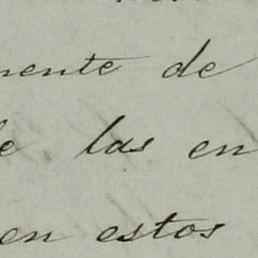 mente de
las en
en estos